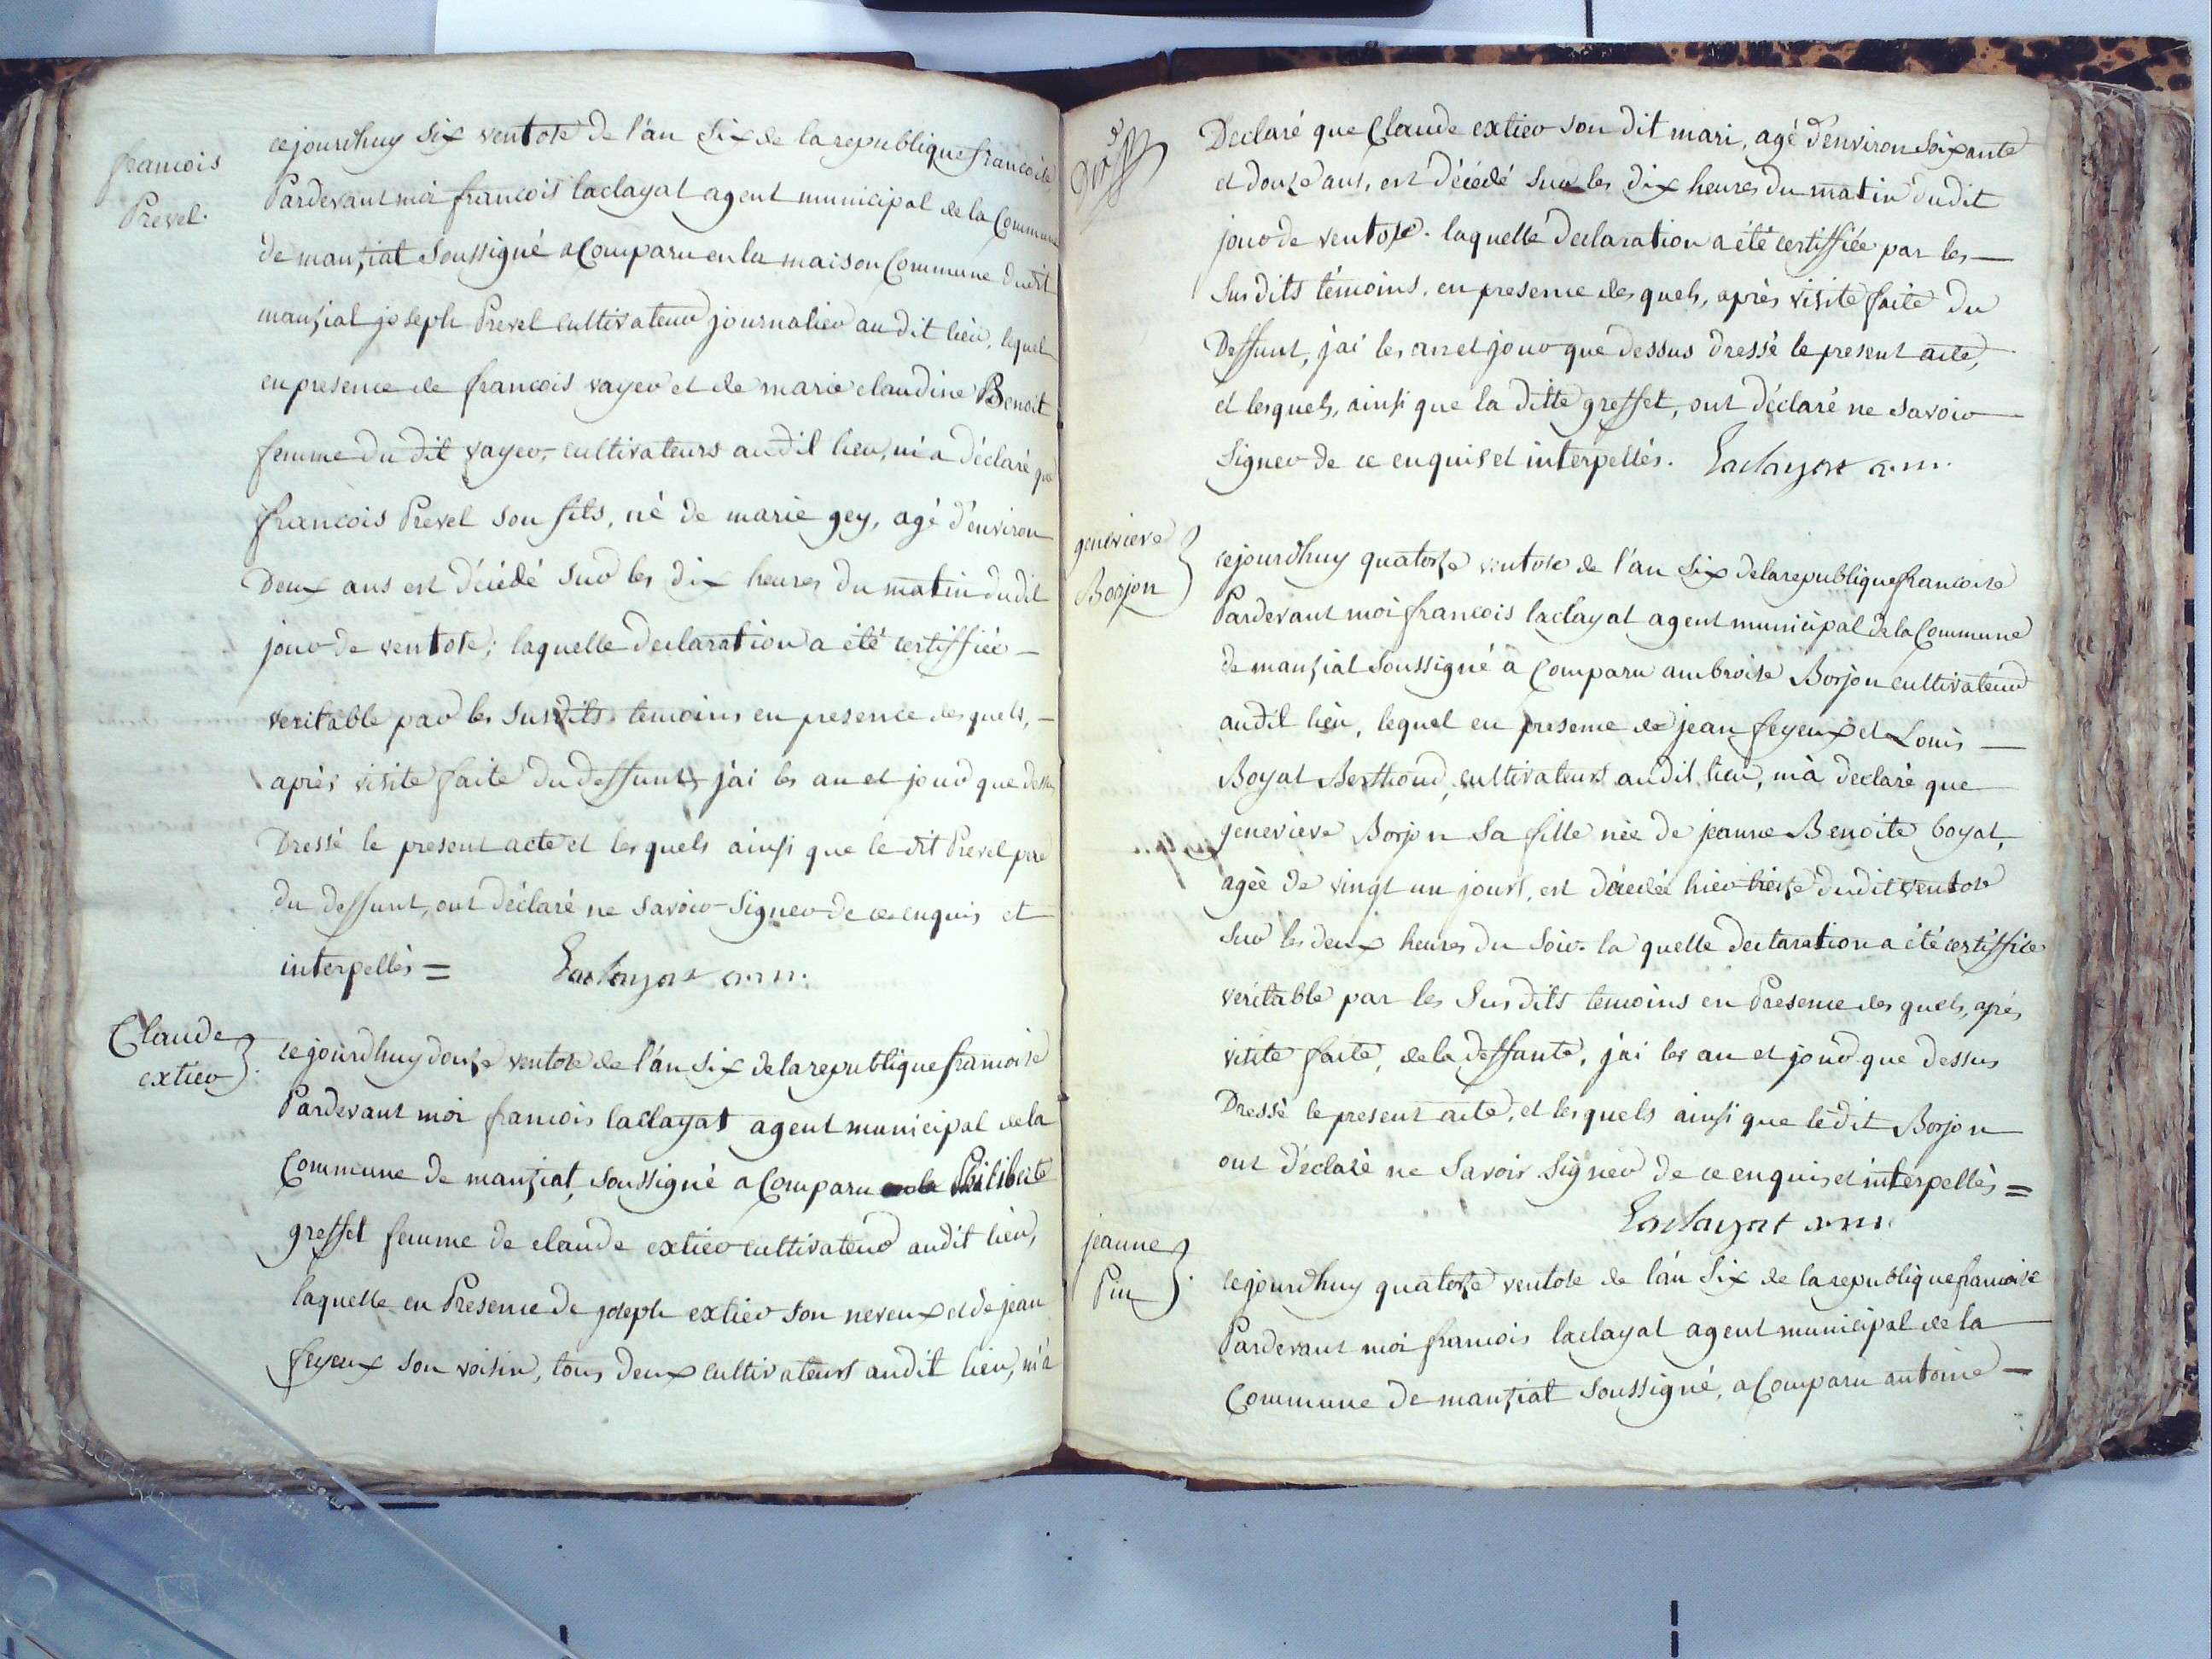 francois
Prevel.
cejourdhuy six ventose de l'an six de la republique francoise
Pardevant moi francois laclayat agent municipal de la Commune
de manziat soussigné a Comparu en la maison Commune dudit
manziat joseph Prevel cultivateur journalier audit lieu, lequel
en presence de francois vayer et de marie claudine Benoit
femme du dit vayer, cultivateurs audit lieu, m'a déclaré que
francois Prevel son fils, né de marie gey, agé d'environ
Deux ans est décédé sur les dix heures du matin dudit
jour de ventose; laquelle declaration a été certiffiée
veritable par les susdits temoins en presence desquels,
après visite faite du deffunt, j'ai les an et jour que dessus
Dressé le present acte et lesquels ainsi que le dit Prevel pere
du deffunt, ont déclaré ne savoir signer de ce enquis et
interpellés = Laclayat a.m.
Claude
extier
cejourdhuy douze ventose de l'an six de la republique francoise
Pardevant moi francois laclayat agent municipal de la
Commune de manziat, soussigné a Comparu Philiberte
greffet femme de claude extier cultivateur audit lieu,
laquelle en Presence de joseph extier son neveux et de jean
feyeux son voisin, tous deux cultivateurs audit lieu, m'a
Declaré que Claude extier son dit mari, agé d'environ soixante
et douze ans, est décédé sur les dix heures du matin dudit
jour de ventose. laquelle declaration a été certiffiée par les
susdits témoins, en presence desquels, après visite faite du
Deffunt, j'ai les an et jour que dessus dressé le present acte,
et lesquels, ainsi que la ditte greffet, ont déclaré ne savoir
signer de ce enquis et interpellés. Laclayat a.m.
genevieve
Borjon
cejourdhuy quatorze ventose de l'an six de la republique francoise
Pardevant moi francois laclayat agent municipal de la Commune
de manziat soussigné à Comparu ambroise Borjon cultivateur
audit lieu, lequel en presence de jean feyeux et Louis
Boyat Berthoud, cultivateurs audit lieu, m'à declaré que
genevieve Borjon sa fille née de jeanne Benoite boyat,
agée de vingt un jours, est décedée hier treize dudit ventose
sur les deux heures du soir. la quelle declaration a été certiffiée
veritable par les susdits temoins en Presence desquels, après
visite faite, de la deffunte, j'ai les an et jour que dessus
Dressé le present acte, et lesquels ainsi que ledit Borjon
ont déclaré ne savoir signer de ce enquis et interpellés =
Laclayat a.m.
jeanne
Pin
cejourdhuy quatorze ventose de l'an six de la republique francoise
Pardevant moi francois laclayat agent municipal de la
Commune de manziat soussigné, a Comparu antoine